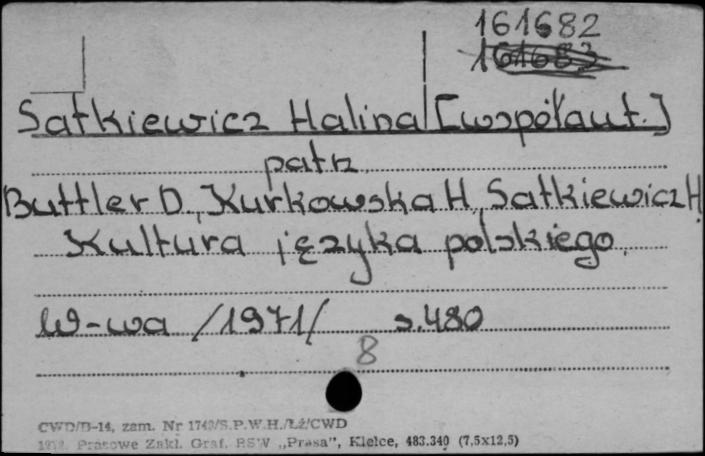 161682
161683
Satkiewicz Halina [współaut.]
patrz
Buttler D., Kurkowska H., Satkiewicz H.
Kultura języka polskiego.
W-wa /1971/ s.480
8
CWD/B-14, zam. Nr 1743/S.P.W.H./Łź/CWD
Prasowe Zakł. Graf. RSW „Prasa”, Kielce, 483.340 (7,5x12,5)